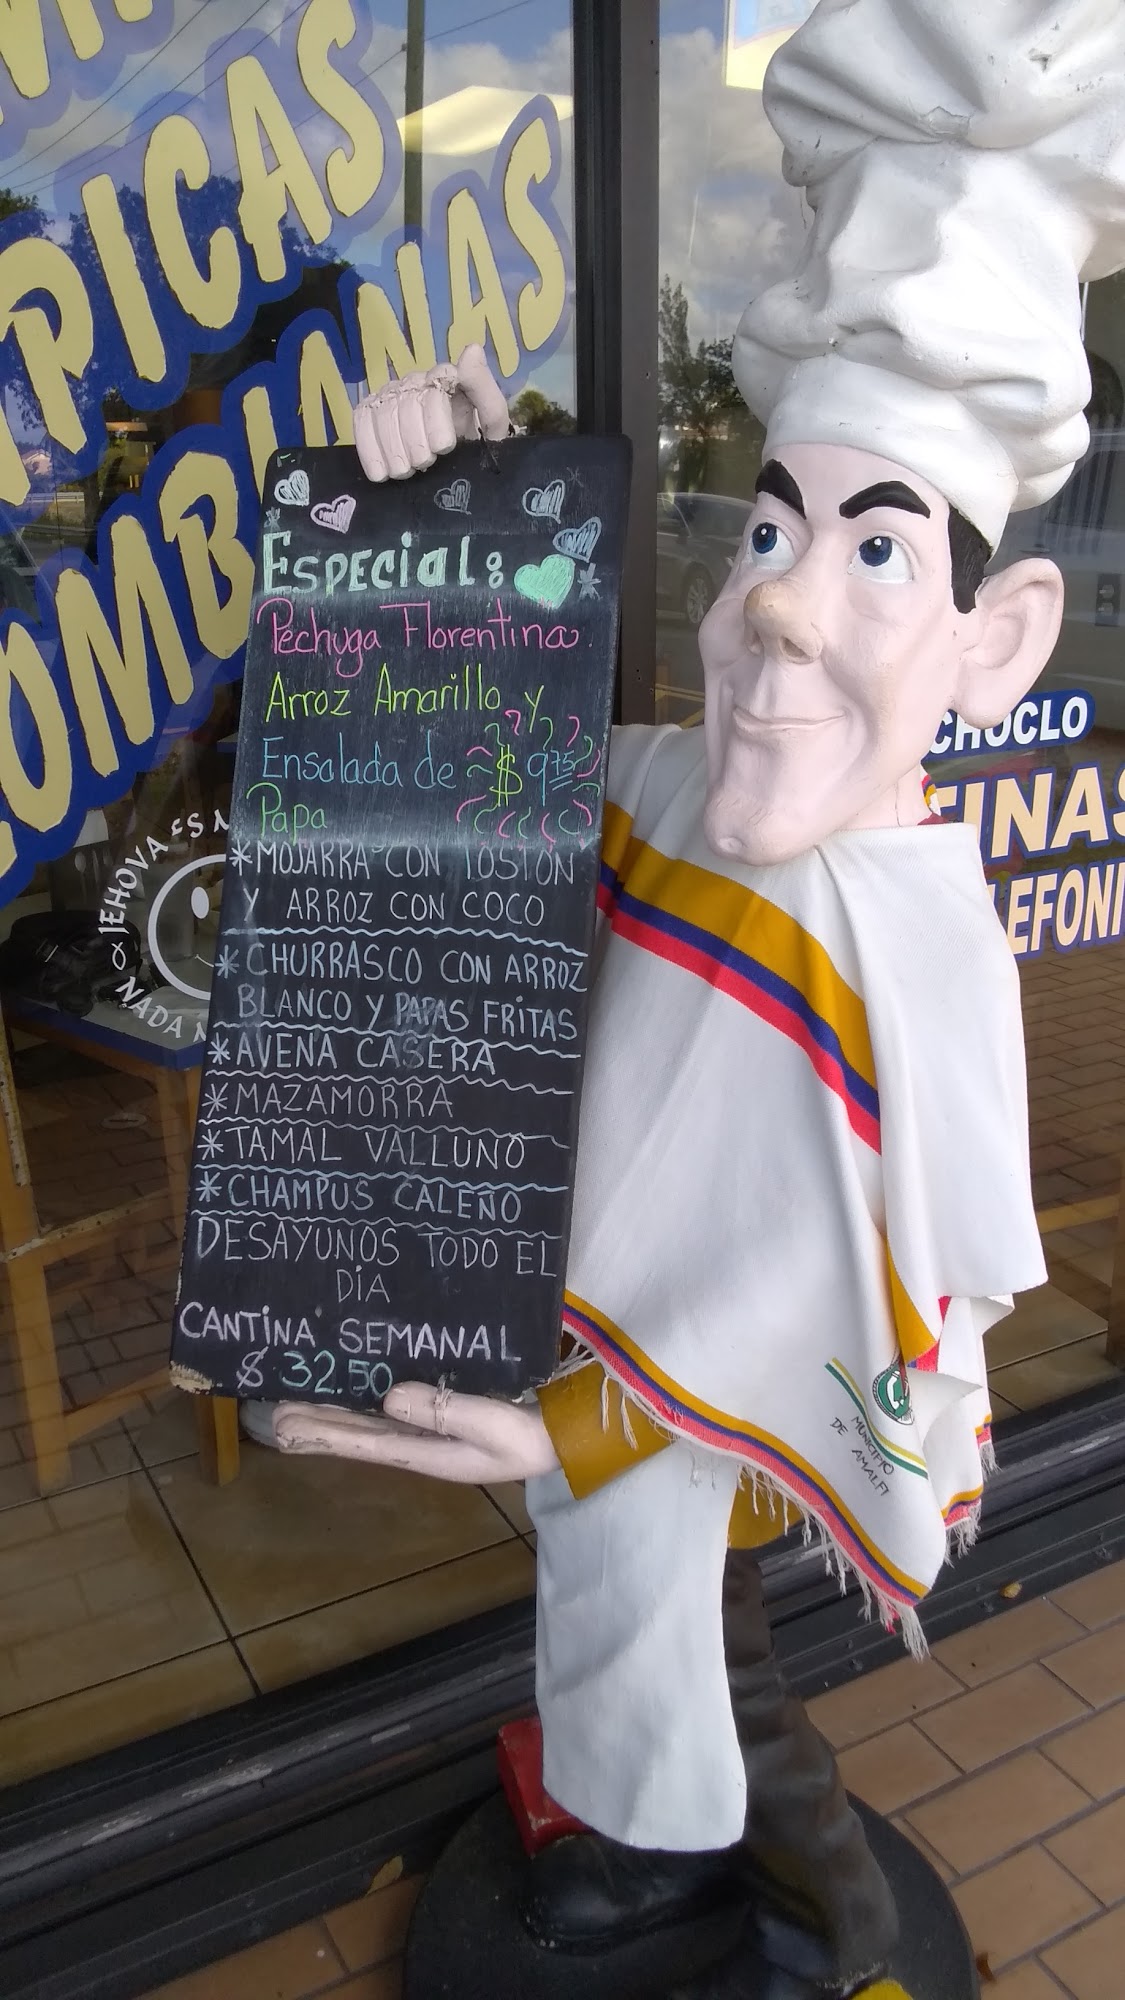 PICAS
OMBIANAS
JEHOVA ES
NADA
Especial:
Pechuga Florentina.
Arroz Amarillo y
Ensalada de $ 975
Papa
*MOJARRA CON TOSTON
Y ARROZ CON COCO
*CHURRASCO CON ARROZ
BLANCO Y PAPAS FRITAS
*AVENA CASERA
*MAZAMORRA
*TAMAL VALLUNO
*CHAMPUS CALEÑO
DESAYUNOS TODO EL
DIA
CANTINA SEMANAL
$ 32.50
CHOCLO
TINAS
LEFONI
MUNICIPIO
DE AMALFI